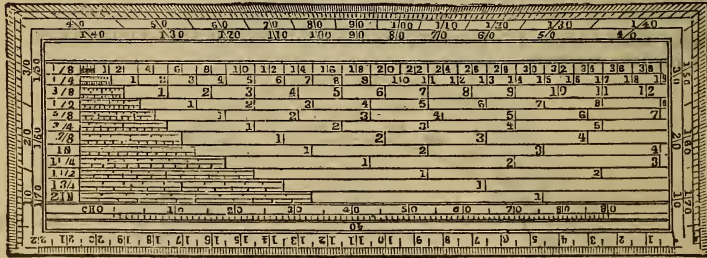 4|0 5|0 6|0 7|0 8|0 9|0 1|00 1|10 1|20 1|30 1|40
1|40 1|30 1|20 1|10 1|00 9|0 8|0 7|0 6|0 5|0 4|0
1/8 1 2 4 6 8 10 12 14 16 18 20 22 24 26 28 30 32 34 36 38
1/4 1 2 3 4 5 6 7 8 9 10 11 12 13 14 15 16 17 18 19
3/8 1 2 3 4 5 6 7 8 9 10 11 12
1/2 1 2 3 4 5 6 7 8
5/8 1 2 3 4 5 6 7
3/4 1 2 3 4 5
7/8 1 2 3 4
1N 1 2 3 4
1 1/4 1 2 3
1 1/2 1 2
1 3/4 1
2IN 1
CHO 1|0 2|0 3|0 4|0 5|0 6|0 7|0 8|0
40
22 21 20 19 18 17 16 15 14 13 12 11 10 9 8 7 6 5 4 3 2 1
3|0 2|0 1|0
1|50 1|60 1|70
3|0 2|0 1|0
1|50 1|60 1|70